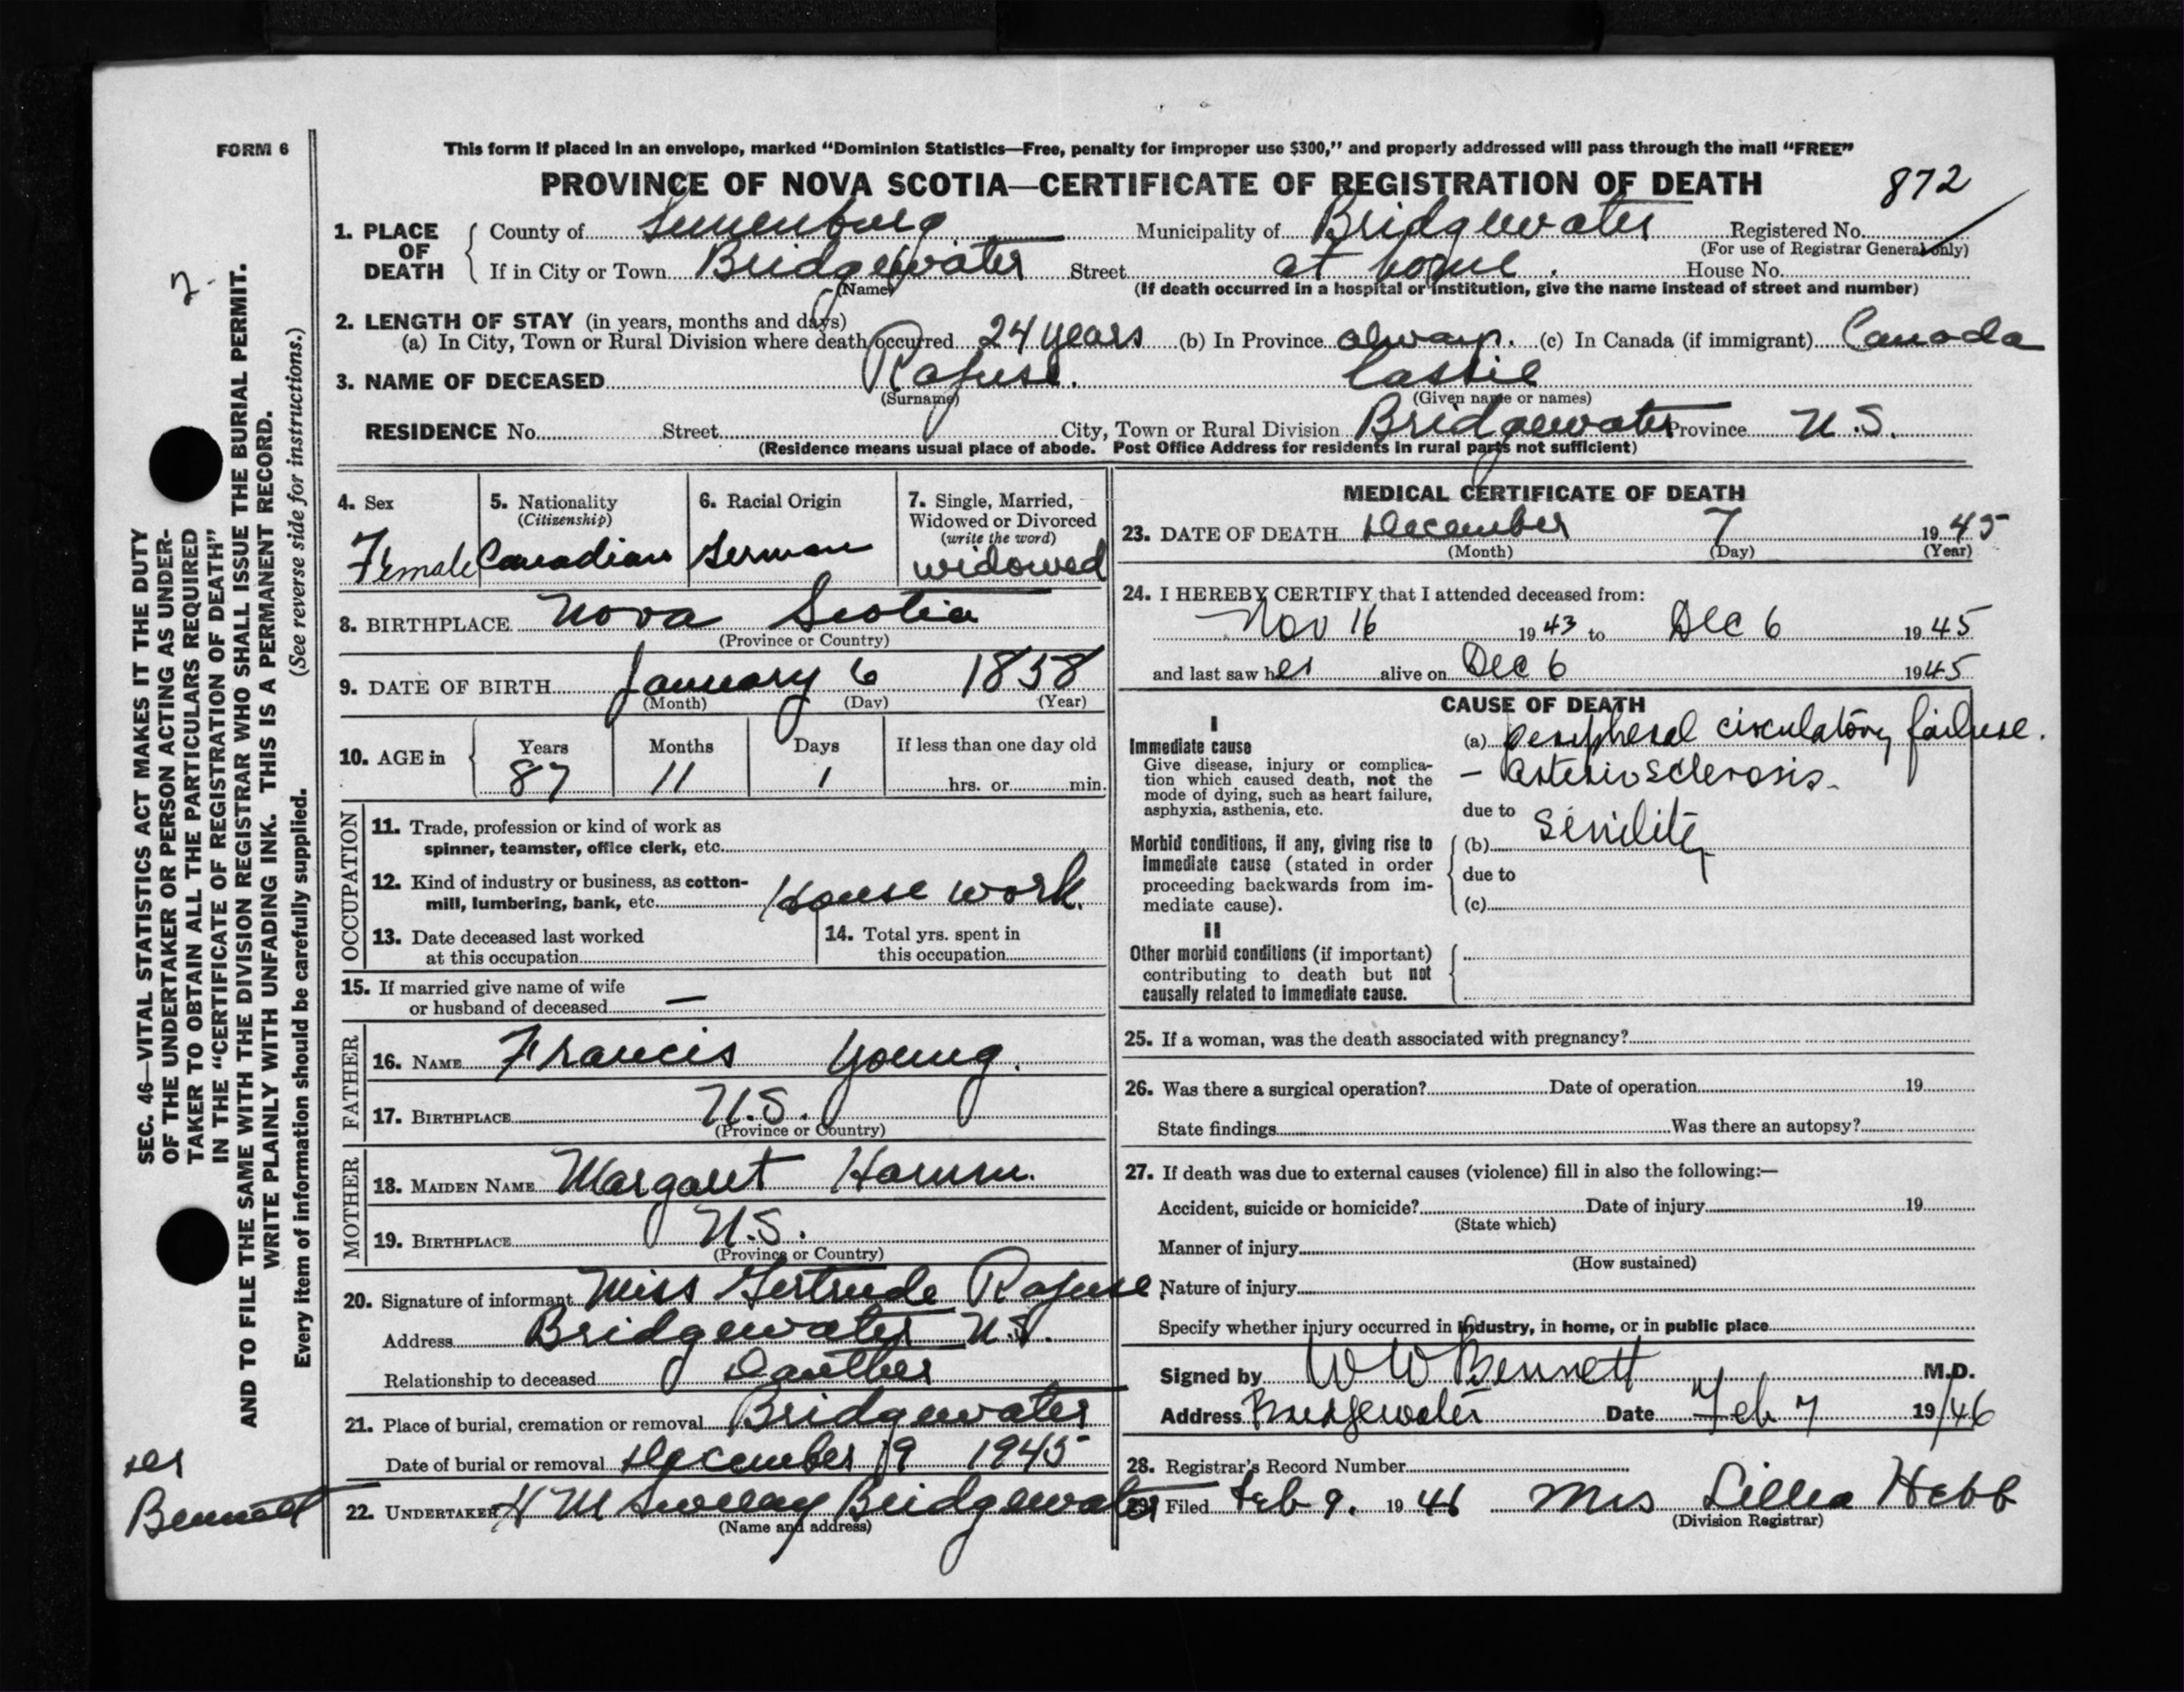 FORM 6
This form if placed in an envelope, marked “Dominion Statistics—Free, penalty for improper use $300,” and properly addressed will pass through the mail “FREE”
PROVINCE OF NOVA SCOTIA—CERTIFICATE OF REGISTRATION OF DEATH 872
1. PLACE OF DEATH County of Lunenburg Municipality of Bridgewater Registered No.
(For use of Registrar General only)
If in City or Town Bridgewater Street at home. House No.
(Name) (If death occurred in a hospital or institution, give the name instead of street and number)
2. LENGTH OF STAY (in years, months and days)
(a) In City, Town or Rural Division where death occurred 24 years (b) In Province always. (c) In Canada (if immigrant) Canada
3. NAME OF DECEASED Rafuse. Cassie
(Surname) (Given name or names)
RESIDENCE No. Street City, Town or Rural Division Bridgewater Province N.S.
(Residence means usual place of abode. Post Office Address for residents in rural parts not sufficient)
4. Sex Female
5. Nationality (Citizenship) Canadian
6. Racial Origin German
7. Single, Married, Widowed or Divorced (write the word) widowed
8. BIRTHPLACE Nova Scotia
(Province or Country)
9. DATE OF BIRTH January 6 1858
(Month) (Day) (Year)
10. AGE in Years Months Days If less than one day old
87 11 1 hrs. or min.
OCCUPATION
11. Trade, profession or kind of work as
spinner, teamster, office clerk, etc.
12. Kind of industry or business, as cotton-
mill, lumbering, bank, etc. House work.
13. Date deceased last worked
at this occupation
14. Total yrs. spent in
this occupation
15. If married give name of wife
or husband of deceased —
FATHER
16. NAME Francis Young.
17. BIRTHPLACE N.S.
(Province or Country)
MOTHER
18. MAIDEN NAME Margaret Hamm.
19. BIRTHPLACE N.S.
(Province or Country)
20. Signature of informant Miss Gertrude Rafuse
Address Bridgewater N.S.
Relationship to deceased Dauther
21. Place of burial, cremation or removal Bridgewater
Date of burial or removal December 9 1945
22. UNDERTAKER H M Bridgewater
(Name and address)
MEDICAL CERTIFICATE OF DEATH
23. DATE OF DEATH December 7 1945
(Month) (Day) (Year)
24. I HEREBY CERTIFY that I attended deceased from:
Nov 16 1943 to Dec 6 1945
and last saw her alive on Dec 6 1945
CAUSE OF DEATH
I
Immediate cause
Give disease, injury or complica-
tion which caused death, not the
mode of dying, such as heart failure,
asphyxia, asthenia, etc.
(a) peripheral circulatory failure.
— arteriosclerosis.
due to
Morbid conditions, if any, giving rise to
immediate cause (stated in order
proceeding backwards from im-
mediate cause).
(b) Senility
due to
(c)
II
Other morbid conditions (if important)
contributing to death but not
causally related to immediate cause.
25. If a woman, was the death associated with pregnancy?
26. Was there a surgical operation? Date of operation 19
State findings Was there an autopsy?
27. If death was due to external causes (violence) fill in also the following:—
Accident, suicide or homicide? Date of injury 19
(State which)
Manner of injury
(How sustained)
Nature of injury
Specify whether injury occurred in industry, in home, or in public place
Signed by W W Bennett M.D.
Address Bridgewater Date Feb 7 19/46
28. Registrar's Record Number
29. Filed Feb 9. 1946 Mrs Lillia Hebb
(Division Registrar)
2
SEC. 46—VITAL STATISTICS ACT MAKES IT THE DUTY
OF THE UNDERTAKER OR PERSON ACTING AS UNDER-
TAKER TO OBTAIN ALL THE PARTICULARS REQUIRED
IN THE “CERTIFICATE OF REGISTRATION OF DEATH”
AND TO FILE THE SAME WITH THE DIVISION REGISTRAR WHO SHALL ISSUE THE BURIAL PERMIT.
WRITE PLAINLY WITH UNFADING INK. THIS IS A PERMANENT RECORD.
Every item of information should be carefully supplied. (See reverse side for instructions.)
Bennett